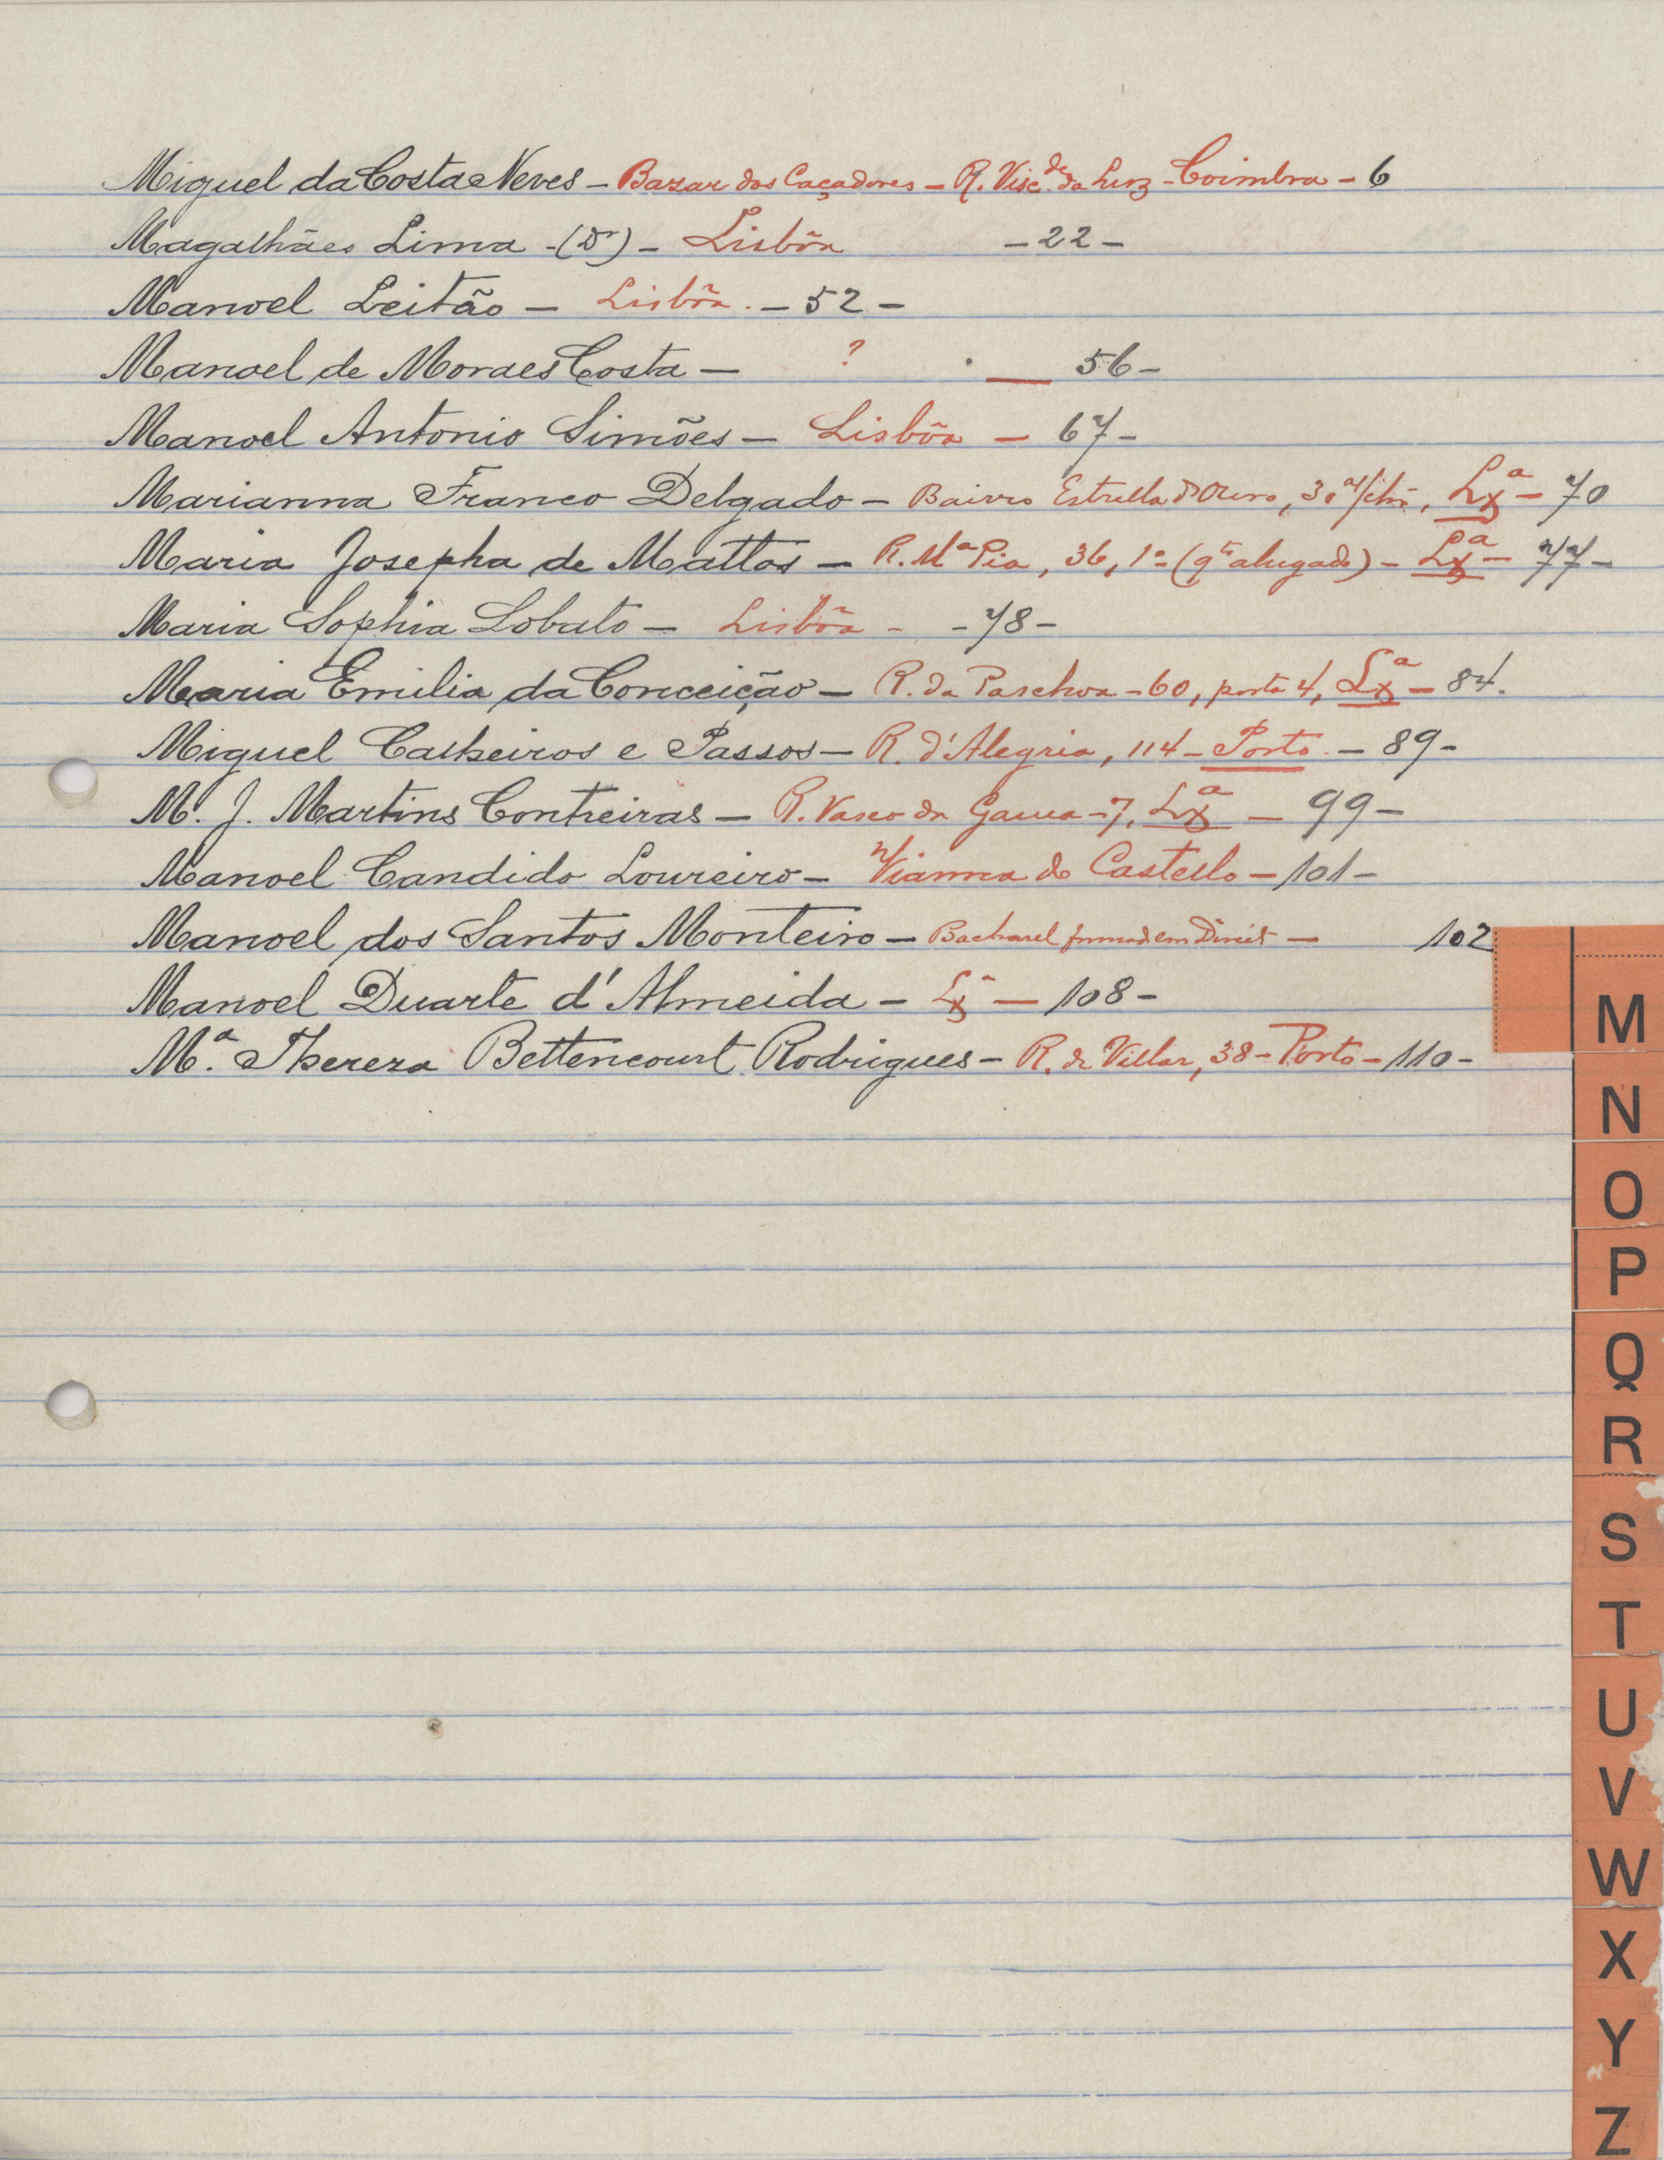 Miguel da Costa Neves – Bazar dos Caçadores – R. Visc.de da Luz – Coimbra – 6
Magalhães Lima – (Dr) – Lisbôa – 22 –
Manoel Leitão – Lisbôa. – 52 –
Manoel de Moraes Costa – ? — 56 –
Manoel Antonio Simões – Lisbôa – 67 –
Marianna Franco Delgado – Bairro Estrella d'Ouro, 30, Lxª – 70
Maria Josepha de Mattos – R. Mª Pia, 36, 1º (qto alugado) – Lxª – 77 –
Maria Sophia Lobato – Lisbôa – – 78 –
Maria Emilia da Conceição – R. da Paschoa – 60, porta 4, Lxª – 84.
Miguel Calheiros e Passos – R. d'Alegria, 114 – Porto – 89 –
M. J. Martins Contreiras – R. Vasco da Gama – 7, Lxª – 99 –
Manoel Candido Loureiro – Vianna do Castello – 101 –
Manoel dos Santos Monteiro – Bacharel formado em Direito – 102
Manoel Duarte d'Almeida – Lxª — 108 –
Mª. Thereza Bettencourt Rodrigues – R. de Villar, 38 – Porto – 110 –
M
N
O
P
Q
R
S
T
U
V
W
X
Y
Z